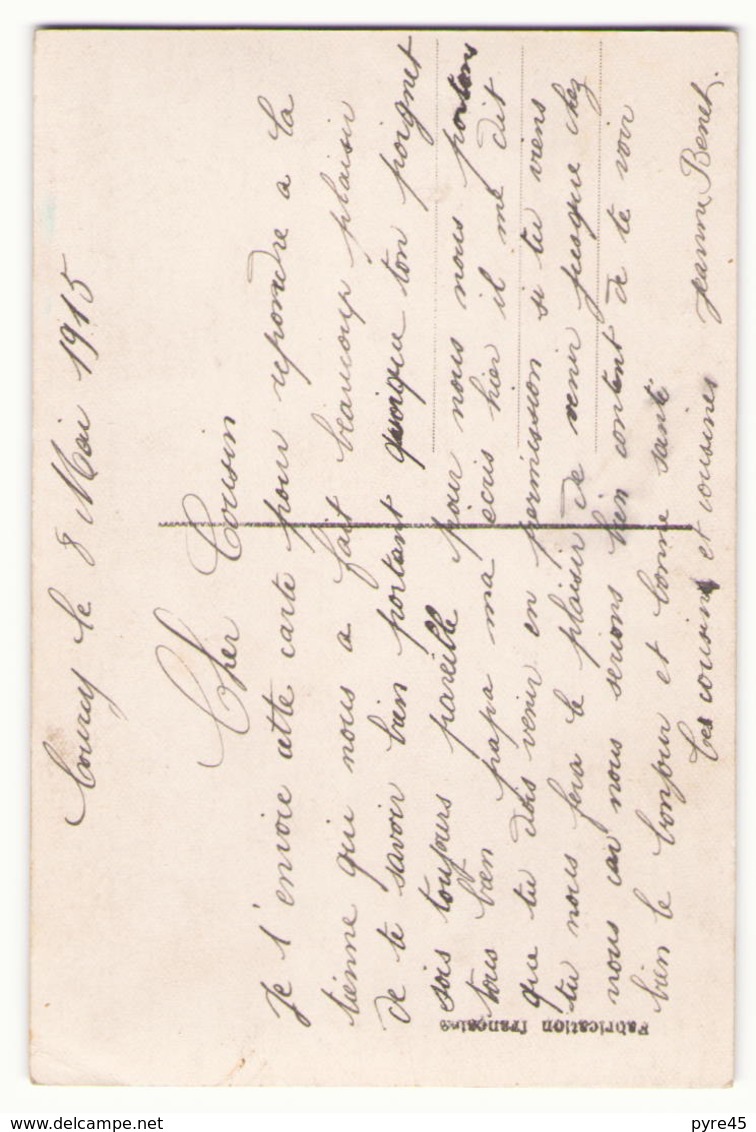 Courcy le 8 Mai 1915
Cher Cousin
Je t'envoie cette carte pour repondre a la
tienne qui nous a fait beaucoup plaisir
de te savoir bien portant quoique ton poignet
sois toujours pareille pour nous nous portons
tous bien papa ma ecris hier il me dit
que tu dois venir en permission si tu viens
tu nous fera le plaisir de venir jusque chez
nous car nous serions bien content de te voir
bien le bonjour et bonne santé
tes cousins et cousines Jeanne Benet.
Fabrication française
pyre45